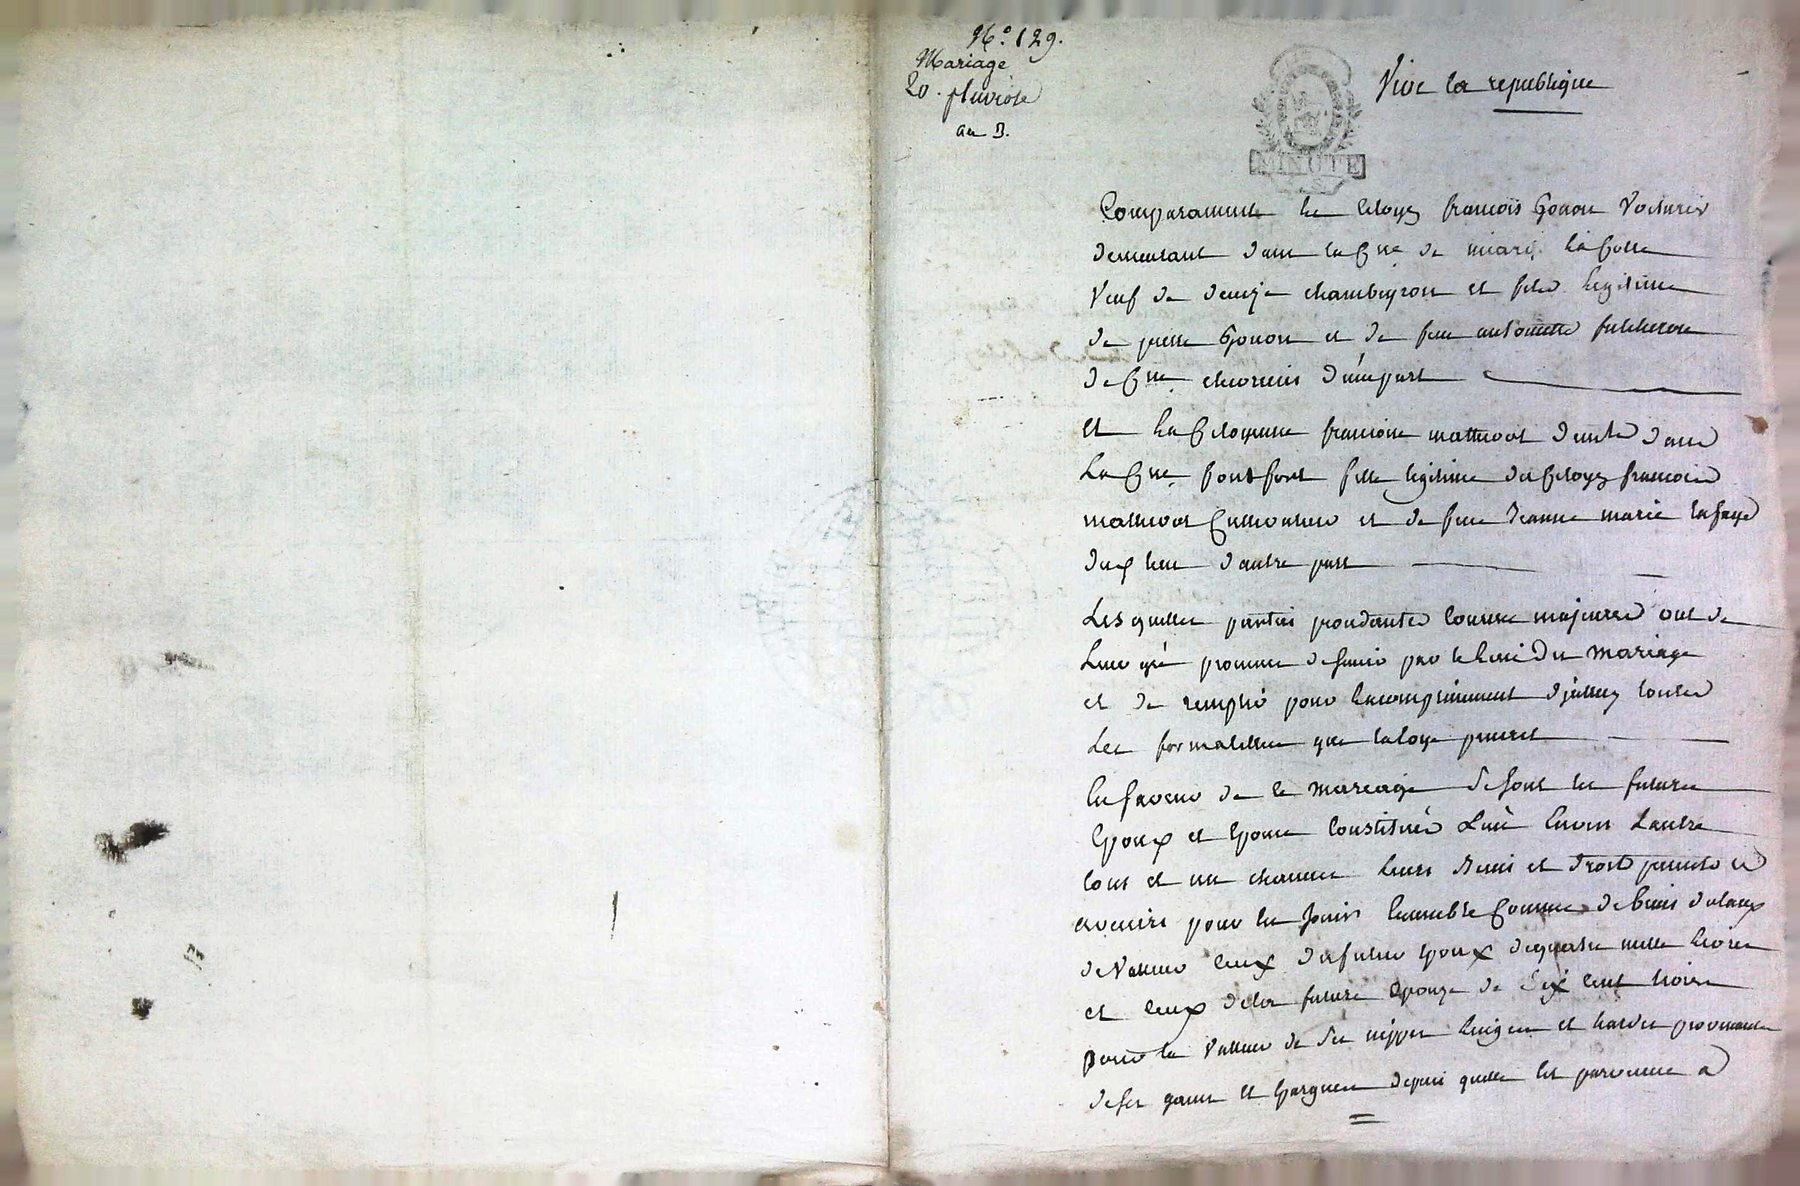 N.° 129.
Mariage
20. pluviose
an 3.
Vive la republique
MINUTE
Comparaument le Citoyen francois Gonon Voiturier
demeurant dans la Cne de
Veuf de chambeyron et fils legitime
de pierre Gonon et de feue antoinette
de Cne d'une part
Et La Citoyenne francoise mattevot dans
La Cne fontfort fille legitime du Citoyen francois
mattevot Cultivateur et de feue Jeanne marie lafaye
du lieu d'autre part
Lesquelles parties comme majeures ont de
Leur gré promis de sunir par le Lien Du Mariage
et de remplir pour Lacomplissement toutes
Les formalittes que laloye
En faveur de ce mariage se sont les futurs
Epoux et Epouse Constitués Lun Envers Lautre
tous et un chacun Leurs Biens et Droits presents et
avenirs pour les Jouir Ensemble Comme de biens dotaux
de Valleur Ceux du futur Epoux de quatre mille Livres
et Ceux dela future Epouse de Six Cent Livres
pour la Valleur de Ses nippes Linges et hardes provenantes
de ses gains et Epargnes depuis quelle Est parvenue a